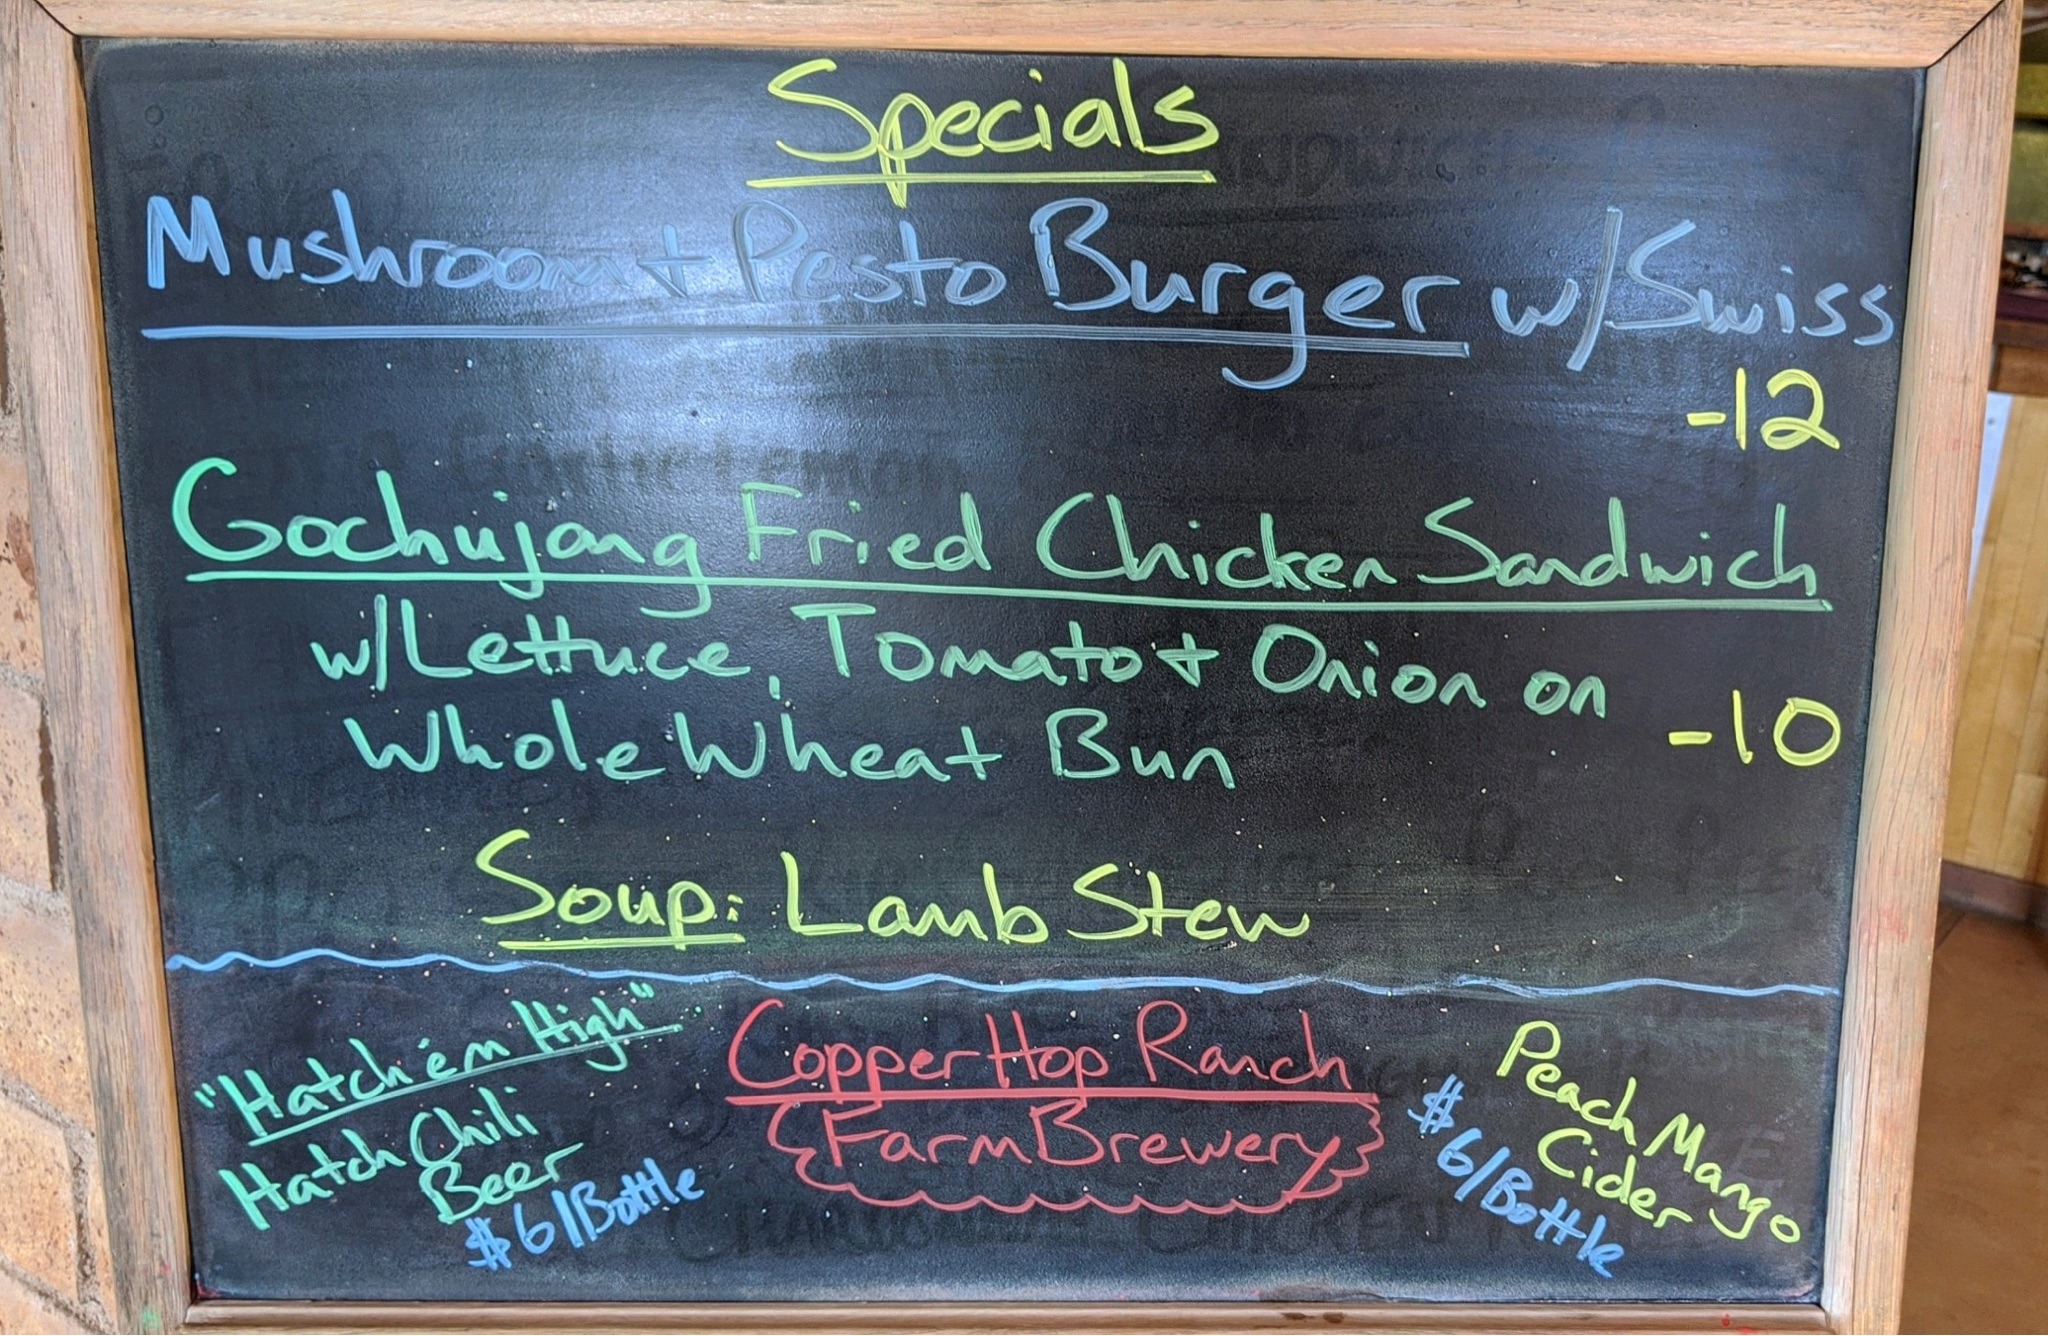 Specials
Mushroom + Pesto Burger w/Swiss
-12
Gochujang Fried Chicken Sandwich
w/Lettuce, Tomato + Onion on
Whole Wheat Bun
-10
Soup: Lamb Stew
"Hatch 'em High"
Hatch Chili
Beer
$6//Bottle
Copper Hop Ranch
Farm Brewery
Peach Mango
Cider
$6/Bottle